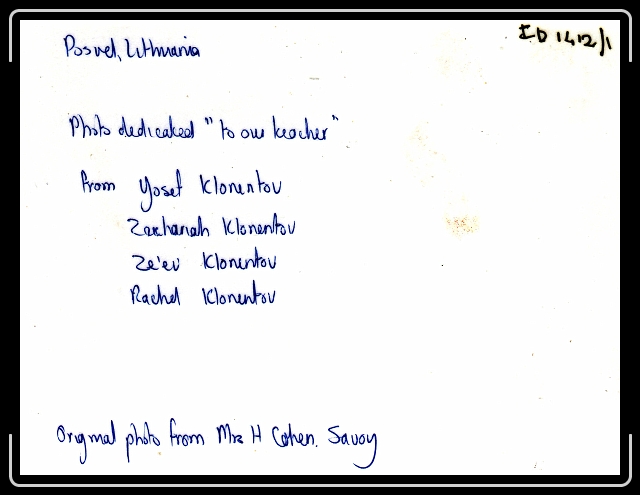 ID 1412/1
Posvel, Lithuania
Photo dedicated "to our teacher"
from Yosef Klonentov
Zechanah Klonentov
Ze'ev Klonentov
Rachel Klonentov
Original photo from Mrs H Cohen. Savoy